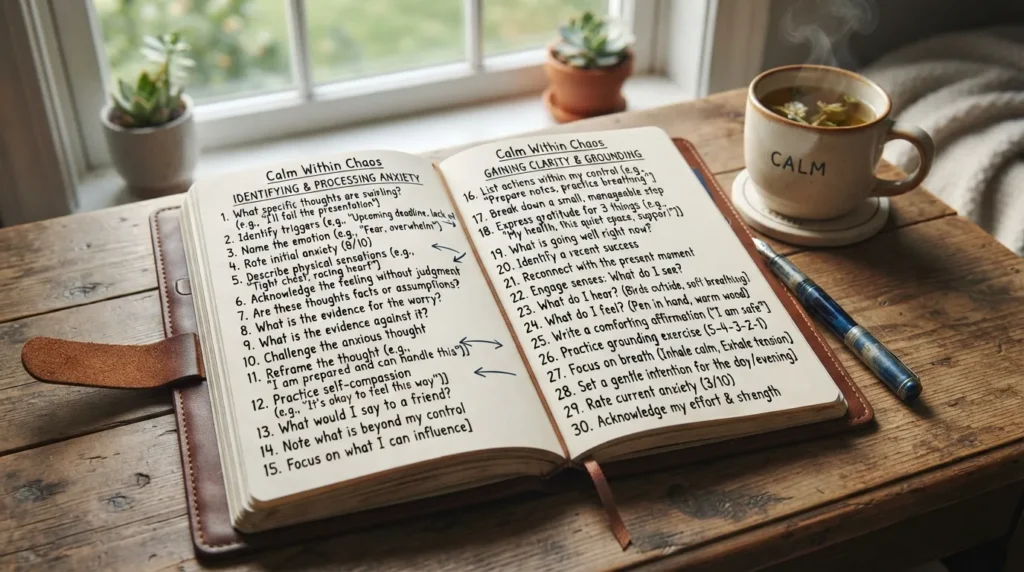 Calm Within Chaos
IDENTIFYING & PROCESSING ANXIETY
1. What specific thoughts are swirling?
(e.g., "I'll fail the presentation")
2. Identify triggers (e.g., "Upcoming deadline, lack of
3. Name the emotion (e.g., "Fear, overwhelm")
4. Rate initial anxiety (8/10)
5. Describe physical sensations (e.g.,
"Tight chest, racing heart")
6. Acknowledge the feeling without judgment
7. Are these thoughts facts or assumptions?
8. What is the evidence for the worry?
9. What is the evidence against it?
10. Challenge the anxious thought
11. Reframe the thought (e.g.,
"I am prepared and can handle this")]
12. Practice self-compassion
(e.g., "It's okay to feel this way")]
13. What would I say to a friend?
14. Note what is beyond my control
15. Focus on what I can influence]
Calm Within Chaos
GAINING CLARITY & GROUNDING
16. List actions within my control (e.g.,
"Prepare notes, practice breathing")
17. Break down a small, manageable step
18. Express gratitude for 3 things (e.g.,
"My health, this quiet space, support")]
19. What is going well right now?
20. Identify a recent success
21. Reconnect with the present moment
22. Engage senses: What do I see?
23. What do I hear? (Birds outside, soft breathing)
24. What do I feel? (Pen in hand, warm wood)
25. Write a comforting affirmation ("I am safe")
26. Practice grounding exercise (5-4-3-2-1)
27. Focus on breath (Inhale calm, Exhale tension)
28. Set a gentle intention for the day/evening)
29. Rate current anxiety (3/10)
30. Acknowledge my effort & strength
CALM